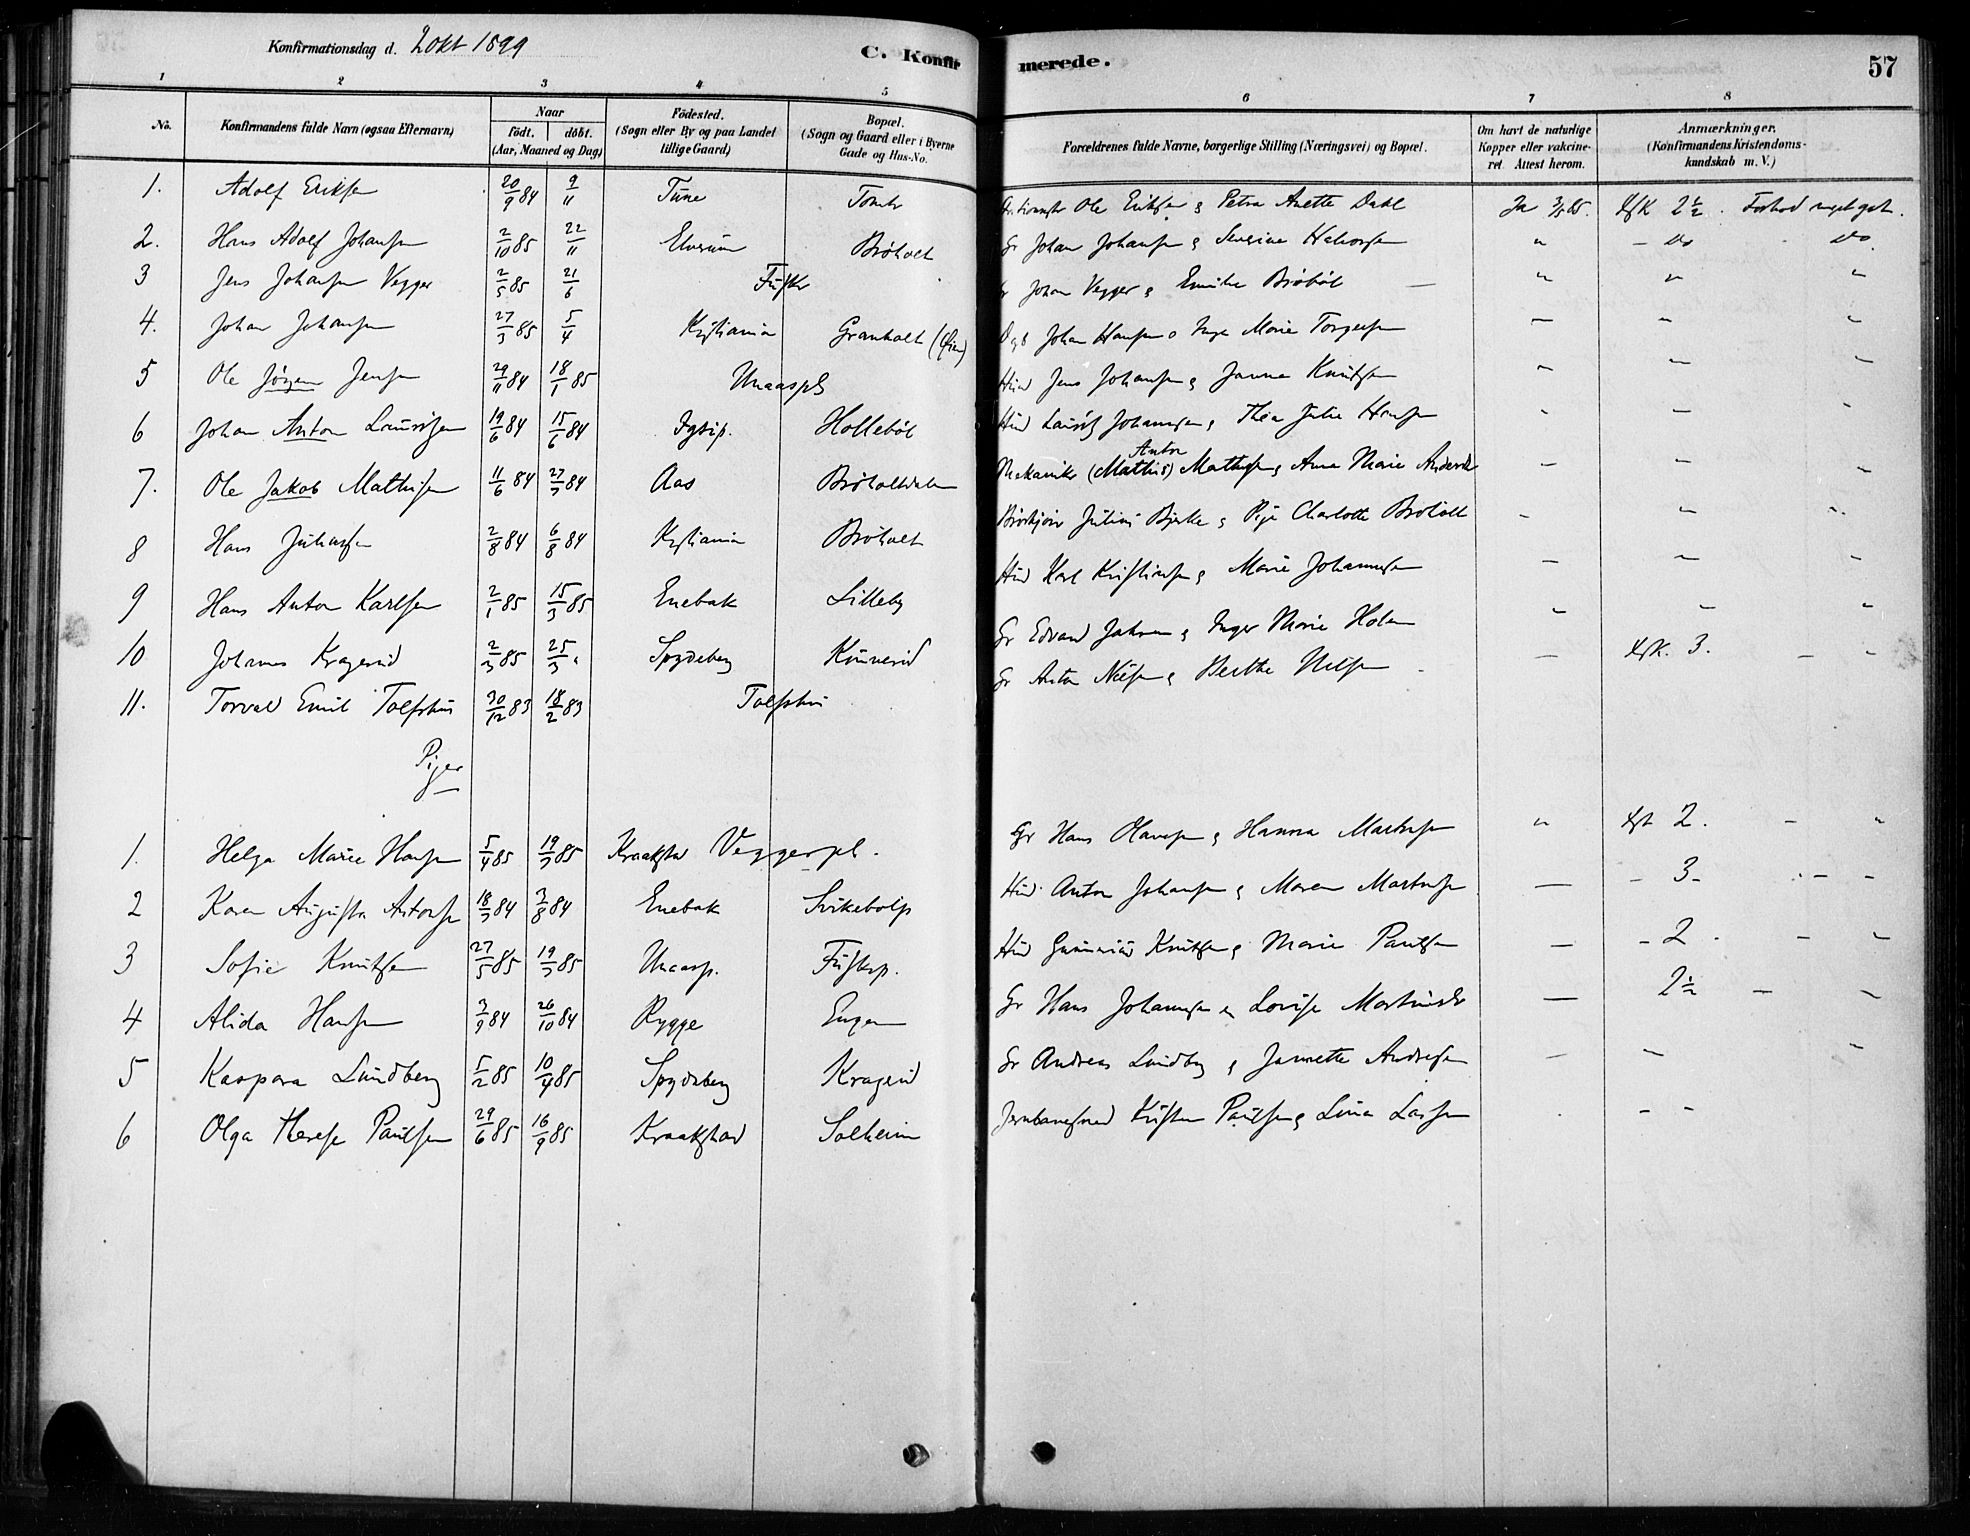 Konfirmationsdag d. 2 okt 1899
C. Konfirmerede.
57
1 2 3 4 5 6 7 8
No.
Konfirmandens fulde Navn (ogsaa Efternavn)
Naar
født. døbt.
(Aar, Maaned og Dag)
Födested.
(Sogn eller By og paa Landet tillige Gaard)
Bopæl.
(Sogn og Gaard eller i Byerne Gade og Hus-No.
Forældrenes fulde Navne, borgerlige Stilling (Næringsvei) og Bopæl.
Om havt de naturlige Kopper eller vakcineret. Attest herom.
Anmærkninger.
(Konfirmandens Kristendomskundskab m. V.)
1. Adolf Eriksen 20/9 84 9/11 Tune Tomter Ole Eriksen & Petra Anette Dahl Ja 2½
2. Hans Adolf Johansen 2/10 85 22/11 Elverum Bröholt Gr Johan Johansen & Severine Halvorsen " – do – do
3 Jens Johansen Vegger 2/5 85 21/6 Johan Vegger & Emilie Bröböl " " "
4. Johan Johansen 27/3 85 5/4 Kristiania Granholt Johan Hansen & Inga Marie Torgersen – – "
5 Ole Jörgen Jensen 29/11 84 18/1 85 Unaaspl Husd Jens Johansen & Janna Knutsen
6 Johan Anton Lauritsen 19/6 84 15/6 84 Hollebøl Husd Laurits Johannesen & Thea Julie Hansen
7. Ole Jakob Mathisen 11/6 84 27/7 84 Aas Bröholtdalen Mekaniker (Mathis) Anton Mathisen & Anna Marie Andersdr
8 Hans Juliussen 2/8 84 6/8 84 Kristiania Bröholt Julius Bjerke & Pige Charlotte Bröholt
9 Hans Anton Karlsen 2/1 85 15/3 85 Enebak Lilleby Husd Karl Kristiansen & Marie Johannesen
10 Johannes Kragerud 2/3 85 25/3 " Spydeberg Gr Edvard Jahren & Inger Marie Holen
11. Torvald Emil Tolfshus 30/12 83 18/2 83 Tolfshus Gr Anton Nilsen & Berthe Nilsen – 3. – "
Piger
1. Helga Marie Hansen 5/4 85 19/7 85 Kraakstad Veggerpl. Gr Hans Olavesen & Hanna Martinsen " 2. – "
2 Karen Augusta Antonsen 18/7 84 3/8 84 Enebak Svikebölp Husd. Anton Johansen & Maren Martinsen – – 3 – – –
3 Sofie Knutsen 27/5 85 19/7 85 Unaasp. Husd Gunerius Knutsen & Marie Paulsen – – 2 – – "
4 Alida Hansen 3/9 84 26/10 84 Rygge Engen Gr Hans Johannesen & Lovise Martinsdr – 2½ – –
5 Kaspara Lundberg 5/2 85 10/4 85 Spydeberg Kragerud Gr Andreas Lundby & Jannette Andresen – – "
6 Olga Therese Paulsen 29/6 85 16/9 85 Kraakstad Solheim Kristen Paulsen & Lina Larsen – –